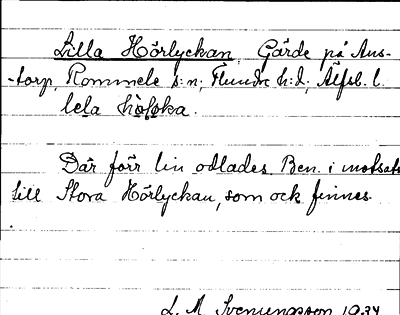 Lilla Hörlyckan, Gärde på Aus-
-torp, Rommele s:n, Flundre h:d, Älfsb. l.
lela
Där förr lin odlades. Ben. i motsats
till Stora Hörlyckan, som ock finnes.
L. M. Svenungsson 1934